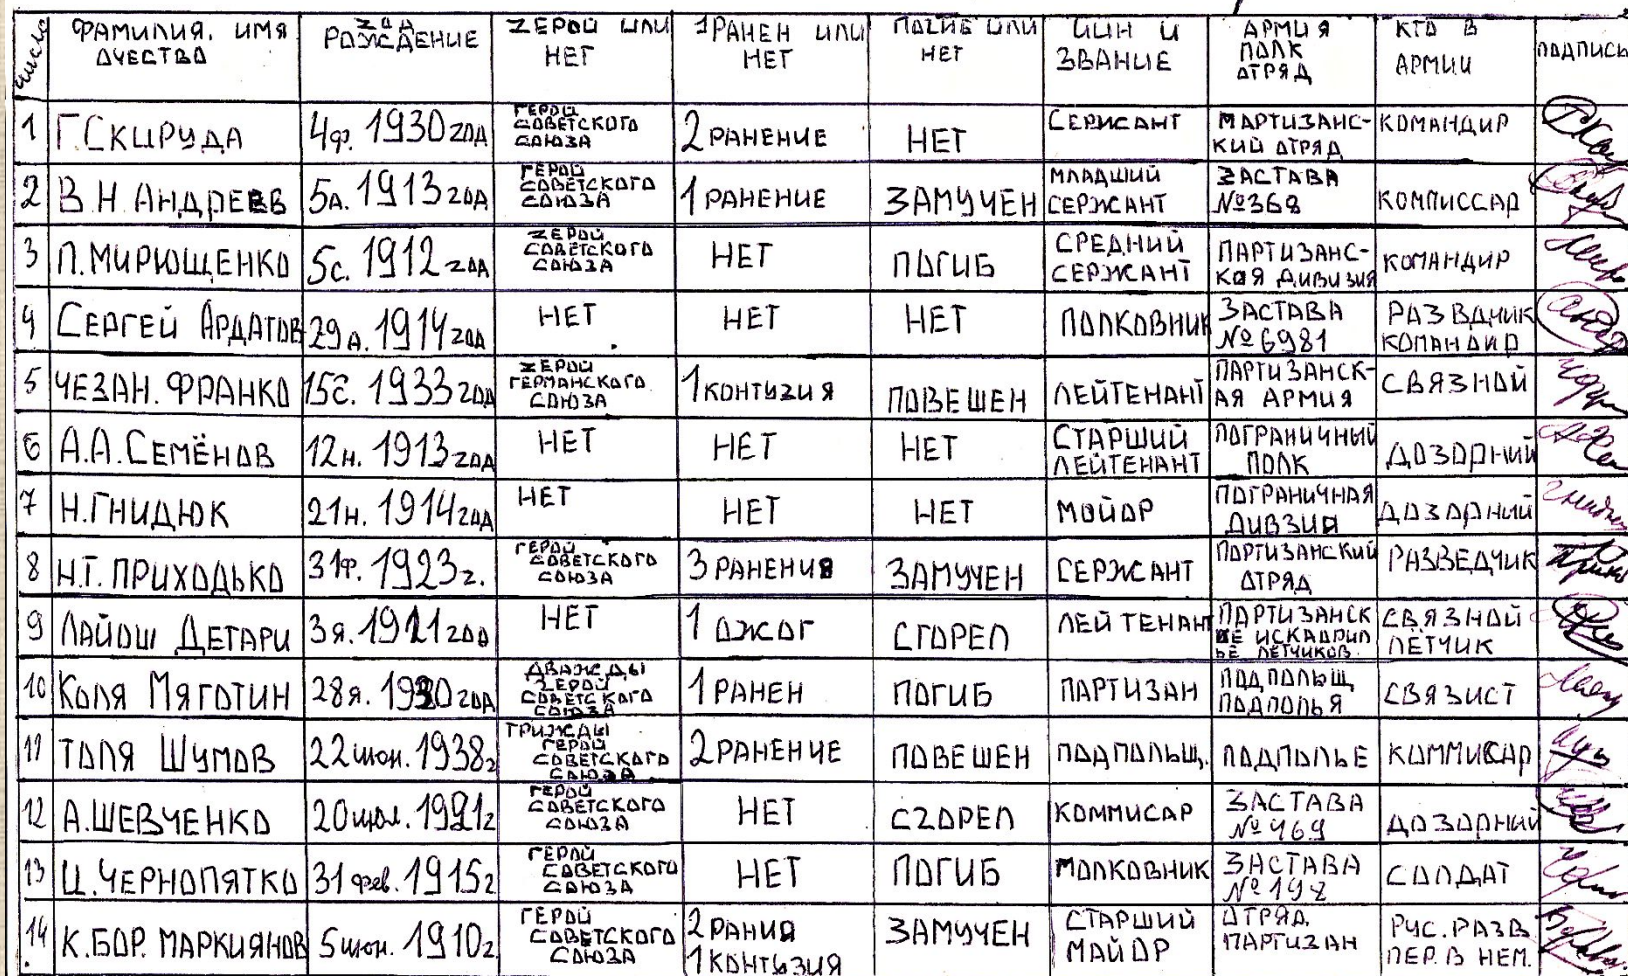 числа
ФАМИЛИЯ. ИМЯ
ОЧЕСТВО
ГОД
РОЖДЕНИЕ
ГЕРОЙ ИЛИ
НЕТ
РАНЕН ИЛИ
НЕТ
ПОГИБ ИЛИ
НЕТ
ЧИН И
ЗВАНИЕ
АРМИЯ
ПОЛК
ОТРЯД
КТО В
АРМИИ
ПОДПИСЬ
1 Г.СКИРУДА 4ф. 1930 год
ГЕРОЙ
СОВЕТСКОГО
СОЮЗА
2 РАНЕНИЕ НЕТ СЕРЖСАНТ
МАРТИЗАНС-
КИЙ ОТРЯД
КОМАНДИР
2 В.Н.АНДРЕЕВ 5а. 1913 год
ГЕРОЙ
СОВЕТСКОГО
СОЮЗА
1 РАНЕНИЕ ЗАМУЧЕН
МЛАДШИЙ
СЕРЖАНТ
ЗАСТАВА
№368
КОМПИССАР
3 П.МИРЮЩЕНКО 5с. 1912 год
ГЕРОЙ
СОВЕТСКОГО
СОЮЗА
НЕТ ПОГИБ
СРЕДНИЙ
СЕРЖАНТ
ПАРТИЗАНС-
КАЯ ДИВИЗИЯ
КОМАНДИР
4 СЕРГЕЙ АРДАТОВ 29а. 1914 год
НЕТ НЕТ НЕТ ПОЛКОВНИК
ЗАСТАВА
№6981
РАЗВДЧИК
КОМАНДИР
5 ЧЕЗАН.ФРАНКО 15с. 1933 год
ГЕРОЙ
ГЕРМАНСКОГО
СОЮЗА
1 КОНТУЗИЯ ПОВЕШЕН ЛЕЙТЕНАНТ
ПАРТИЗАНСК-
АЯ АРМИЯ
СВЯЗНОЙ
6 А.А.СЕМЁНОВ 12н. 1913 год
НЕТ НЕТ НЕТ
СТАРШИЙ
ЛЕЙТЕНАНТ
ПОГРАНИЧНЫЙ
ПОЛК
ДОЗОРНИЙ
7 Н.ГНИДЮК 21н. 1914 год
НЕТ НЕТ НЕТ МОЙОР
ПОГРАНИЧНАЯ
ДИВЗИЯ
ДОЗОРНИЙ
8 Н.Т.ПРИХОДЬКО 31ф. 1923г.
ГЕРОЙ
СОВЕТСКОГО
СОЮЗА
3 РАНЕНИЯ ЗАМУЧЕН СЕРЖСАНТ
ПОРТИЗАНСКИЙ
ОТРЯД
РАЗВЕДЧИК
9 ЛАЙОШ ДЕТАРИ 3я. 1921 год
НЕТ 1 ОЖОГ СГОРЕЛ ЛЕЙТЕНАНТ
ПАРТИЗАНСК
ИСКАДРИЛ
ЬЕ ЛЕТЧИКОВ
СВЯЗНОЙ
ЛЁТЧИК
10 КОЛЯ МЯГОТИН 28я. 1930 год
ДВАЖДЫ
ГЕРОЙ
СОВЕТСКОГО
СОЮЗА
1 РАНЕН ПОГИБ ПАРТИЗАН
ПОДПОЛЬЩ
ПОДПОЛЬЯ
СВЯЗИСТ
11 ТОЛЯ ШУМОВ 22июн. 1938г
ТРИЖДЫ
ГЕРОЙ
СОВЕТСКОГО
СОЮЗА
2 РАНЕНИЕ ПОВЕШЕН ПОДПОЛЬЩ. ПОДПОЛЬЕ КОММИСАР
12 А.ШЕВЧЕНКО 20июл. 1921г
ГЕРОЙ
СОВЕТСКОГО
СОЮЗА
НЕТ СГОРЕЛ КОММИСАР
ЗАСТАВА
№469
ДОЗОРНЫЙ
13 Ц.ЧЕРНОПЯТКО 31 фев. 1915г
ГЕРОЙ
СОВЕТСКОГО
СОЮЗА
НЕТ ПОГИБ МОЛКОВНИК
ЗАСТАВА
№198
СОЛДАТ
14 К.БОР.МАРКИЯНОВ 5июн. 1910г
ГЕРОЙ
СОВЕТСКОГО
СОЮЗА
2 РАНИЯ
1 КОНТЬЗИЯ
ЗАМУЧЕН
СТАРШИЙ
МАЙОР
ОТРЯД
ПАРТИЗАН
РУС.РАЗВ.
ПЕР.В НЕМ.